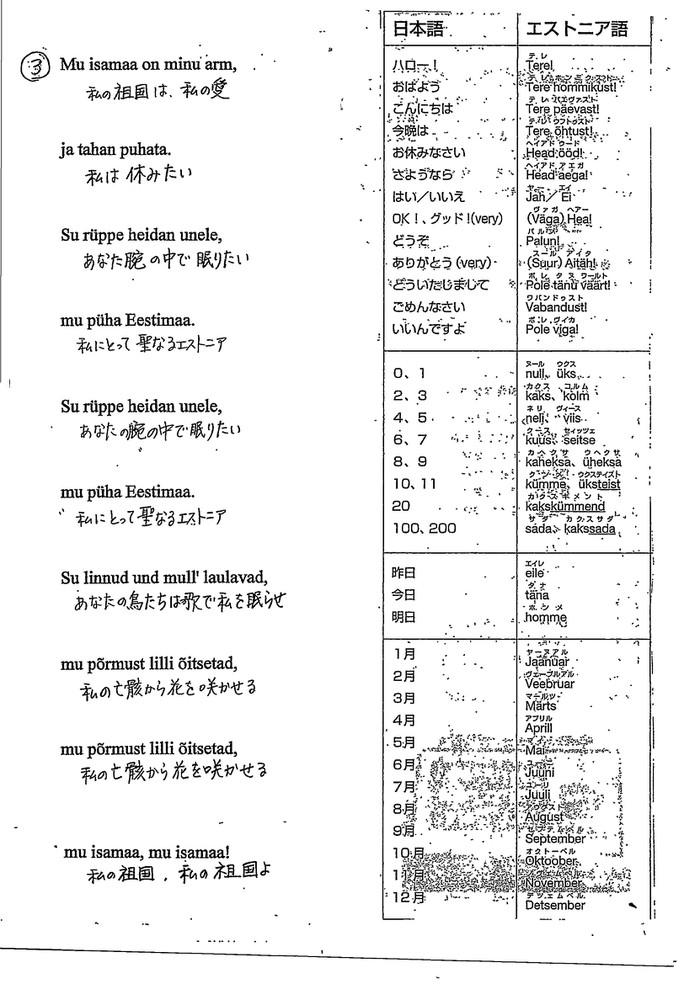 ③ Mu isamaa on minu arm,
私の祖国は、私の愛
ja tahan puhata.
私は休みたい
Su rüppe heidan unele,
あなた腕の中で眠りたい
mu püha Eestimaa.
私にとって聖なるエストニア
Su rüppe heidan unele,
あなたの腕の中で眠りたい
mu püha Eestimaa.
私にとって聖なるエストニア
Su linnud und mull' laulavad,
あなたの鳥たちは歌で私を眠らせ
mu põrmust lilli õitsetad,
私の亡骸から花を咲かせる
mu põrmust lilli õitsetad,
私の亡骸から花を咲かせる
mu isamaa, mu isamaa!
私の祖国、私の祖国よ
日本語 エストニア語
テレ
ハロー! Tere!
おはよう Tere hommikust!
こんにちは Tere päevast!
今晩は Tere õhtust!
ヘイアド ウード
お休みなさい Head ööd!
ヘイアド アエガ
さようなら Head aega!
はい/いいえ Jah/ Ei
ヴァガ ヘアー
OK!、グッド!(very) (Väga) Hea!
どうぞ Palun!
スール アイタ
ありがとう(very) (Suur) Aitäh!
どういたしまして Pole tänu väärt!
ワバンドゥスト
ごめんなさい Vabandust!
ポレ ヴィカ
いいんですよ Pole viga!
ヌール ウクス
0、1 null、üks
カクス コルム
2、3 kaks、kolm
ネリ ヴィース
4、5 neli、viis
クース セイッツェ
6、7 kuus、seitse
カヘクサ ウヘクサ
8、9 kaheksa、üheksa
10、11 kümme、üksteist
20 kakskümmend
サダ カクスサダ
100、200 sada、kakssada
エイレ
昨日 eile
今日 täna
ホンメ
明日 homme
ヤーヌアル
1月 Jaanuar
2月 Veebruar
マールツ
3月 Märts
アプリル
4月 Aprill
5月 Mai
6月 Juuni
7月 Juuli
8月 August
9月 September
オクトーベル
10月 Oktoober
11月 November
12月 Detsember